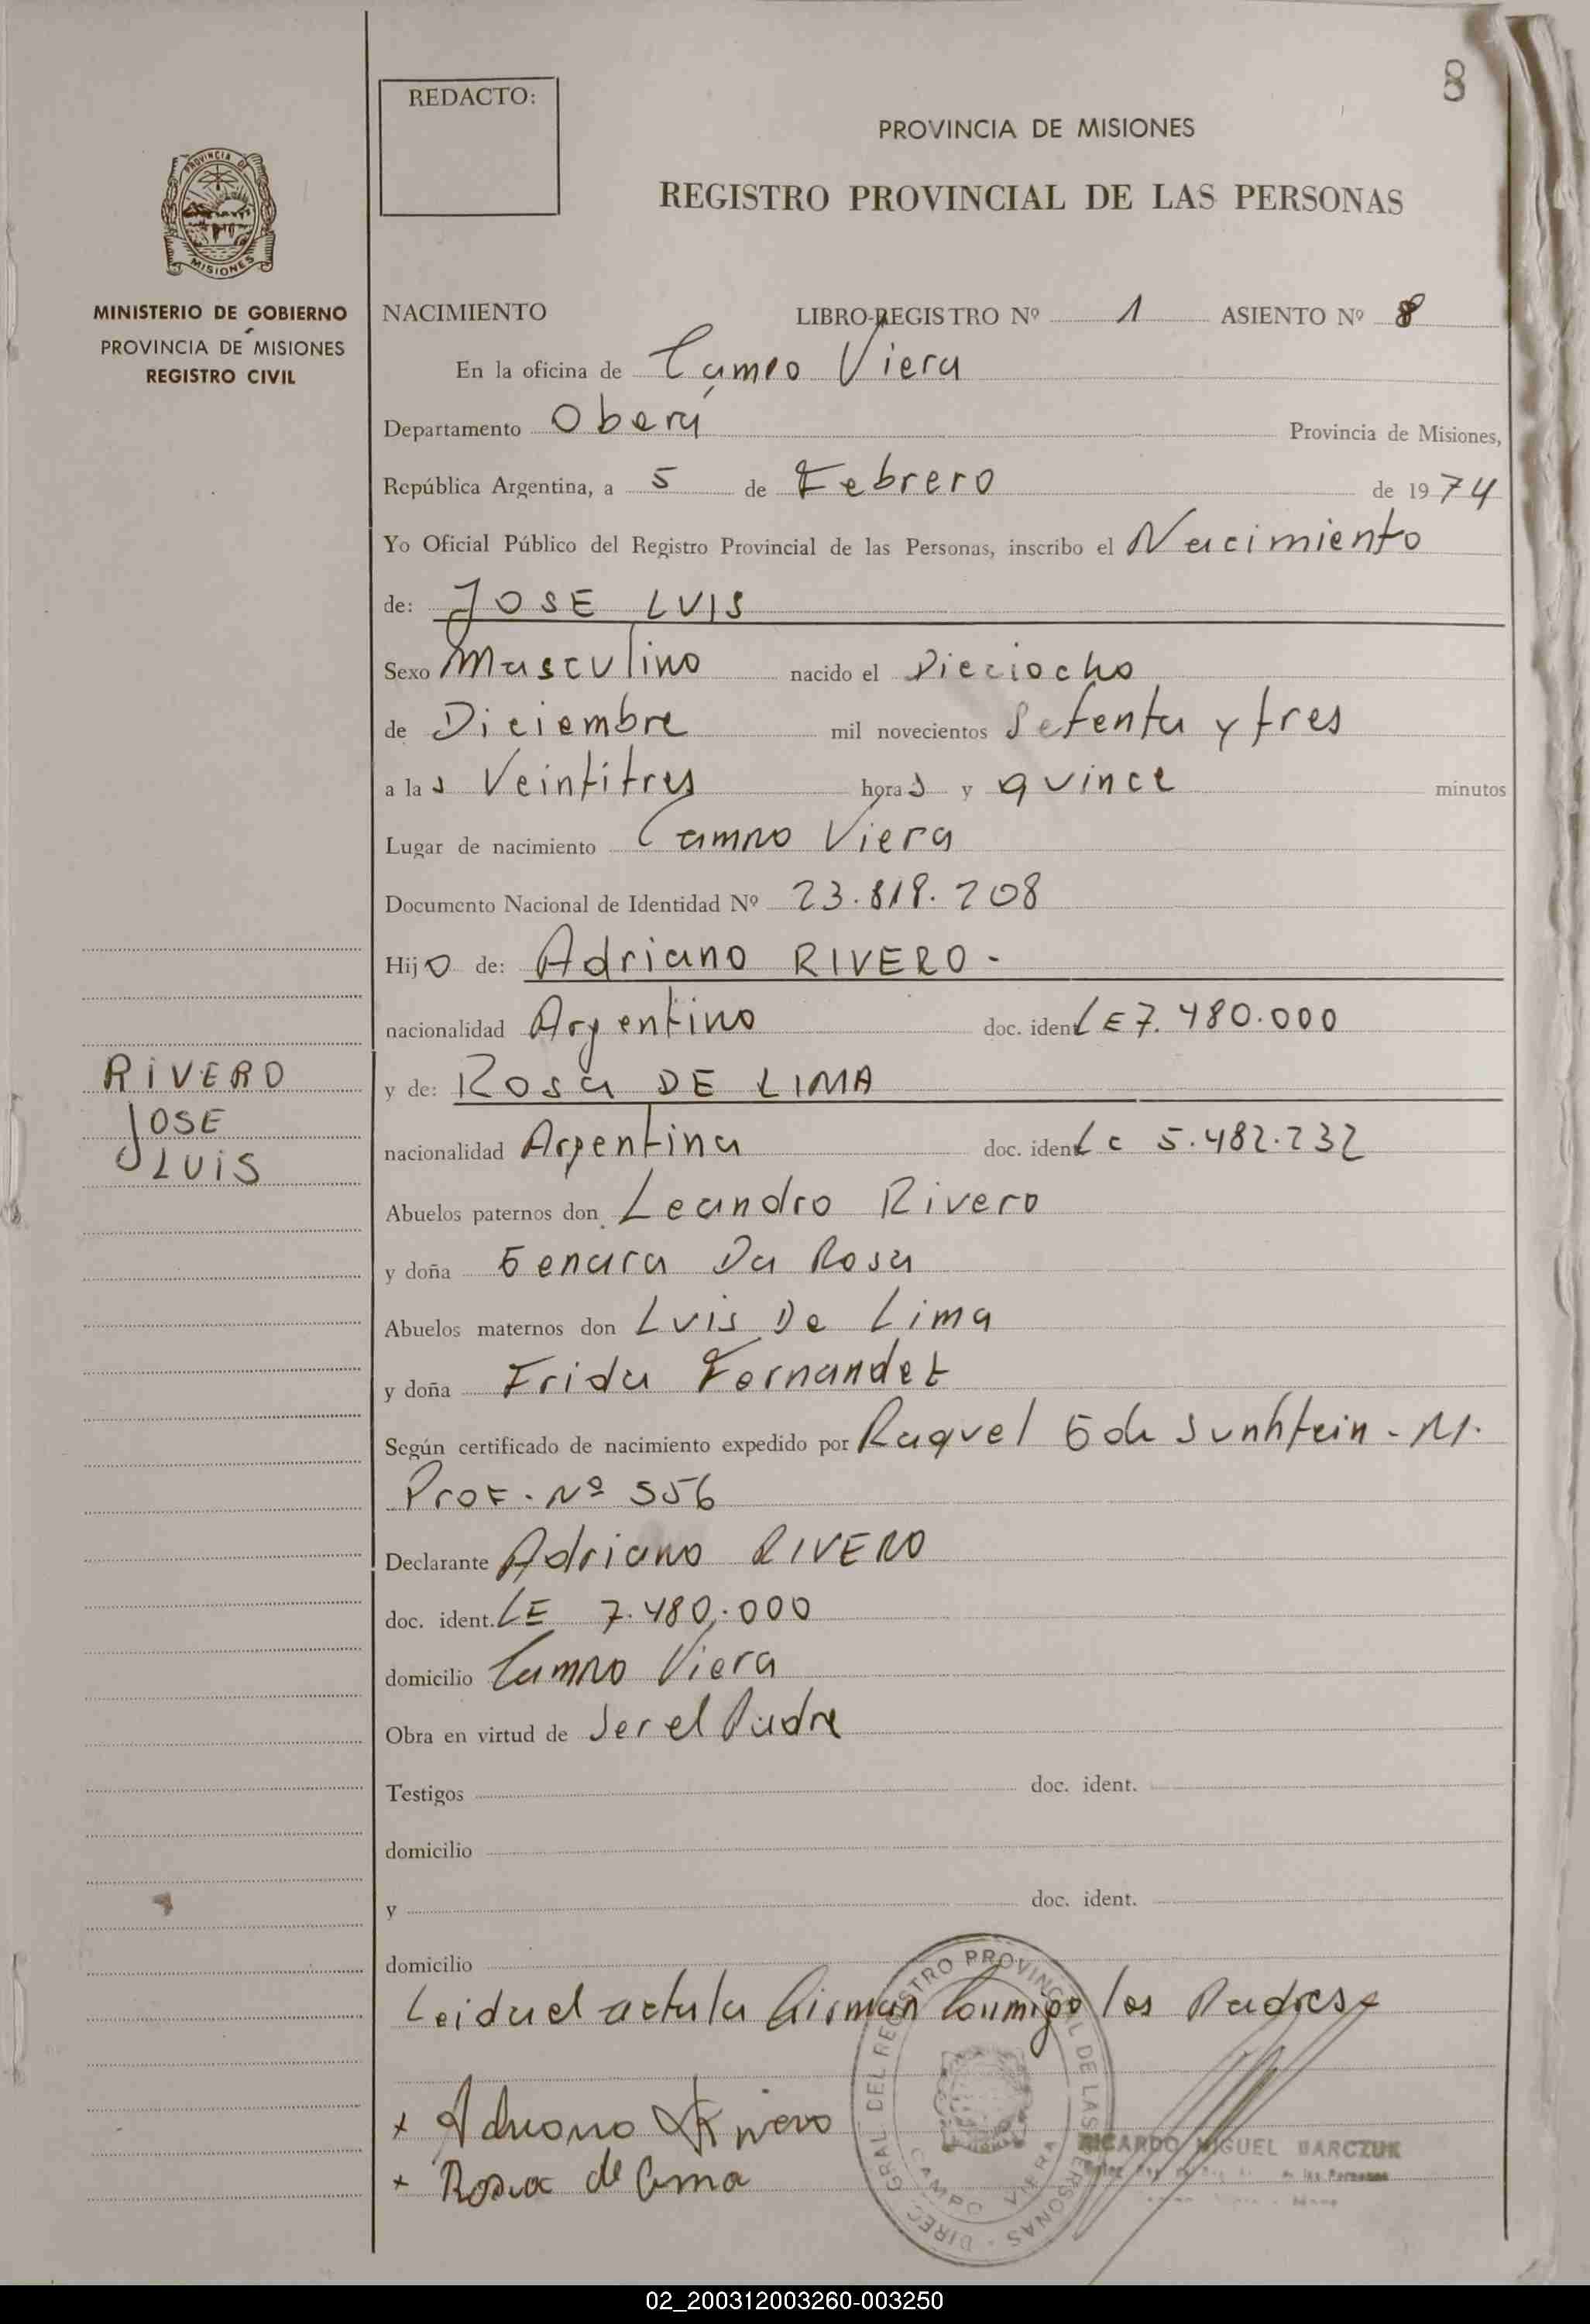 8
REDACTO:
PROVINCIA DE MISIONES
REGISTRO PROVINCIAL DE LAS PERSONAS
PROVINCIA DE
MISIONES
MINISTERIO DE GOBIERNO
PROVINCIA DE MISIONES
REGISTRO CIVIL
NACIMIENTO LIBRO-REGISTRO Nº 1 ASIENTO Nº 8
En la oficina de Campo Viera
Departamento Oberá Provincia de Misiones,
República Argentina, a 5 de Febrero de 1974
Yo Oficial Público del Registro Provincial de las Personas, inscribo el Nacimiento
de: JOSE LUIS
Sexo Masculino nacido el Dieciocho
de Diciembre mil novecientos Setenta y tres
a las Veintitres horas y quince minutos
Lugar de nacimiento Campo Viera
Documento Nacional de Identidad Nº 23.818.208
Hijo de: Adriano RIVERO -
nacionalidad Argentino doc. ident LE 7.480.000
y de: Rosa DE LIMA
nacionalidad Argentina doc. ident Lc 5.482.232
RIVERO
JOSE
LUIS
Abuelos paternos don Leandro Rivero
y doña Genara Da Rosa
Abuelos maternos don Luis De Lima
y doña Frida Fernandez
Según certificado de nacimiento expedido por Raquel G de - M.
Prof. Nº 556
Declarante Adriano RIVERO
doc. ident. LE 7.480.000
domicilio Campo Viera
Obra en virtud de Ser el Padre
Testigos doc. ident.
domicilio
y doc. ident.
domicilio
Leida el acta la firman Conmigo los Padres
+ Adriano Rivero
+ Rosa de Lima
DIREC. GRAL DEL REGISTRO PROVINCIAL DE LAS PERSONAS
CAMPO VIERA
RICARDO MIGUEL BARCZUK
de las Personas
02_200312003260-003250